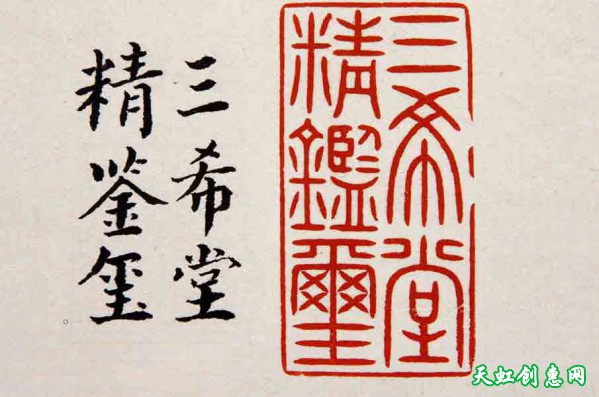 三希堂
精鉴玺
三希堂
精鑑璽
天虹创惠网